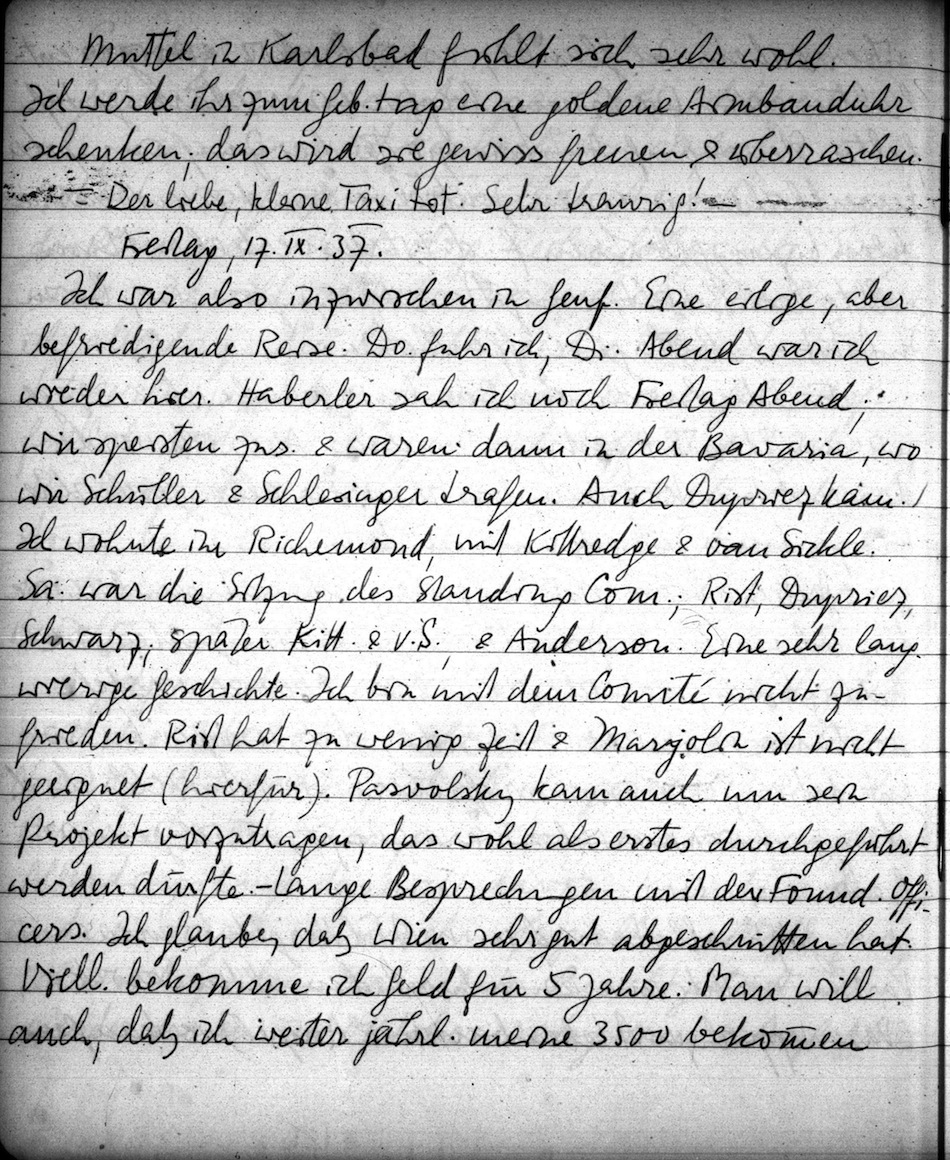 Muttel in Karlsbad fühlt sich sehr wohl.
Ich werde ihr zum Geb.tag eine goldene Armbanduhr
schenken; das wird sie gewiss freuen & überraschen.
– Der liebe, kleine Taxi tot. Sehr traurig! –
Freitag, 17.IX.37.
Ich war also inzwischen in Genf. Eine eilige, aber
befriedigende Reise. Do. fuhr ich, Di. Abend war ich
wieder hier. Haberler sah ich noch Freitag Abend;
wir speisten zus. & waren dann in der Bavaria, wo
wir Schüller & Schlesinger trafen. Auch Dupriez kam.
Ich wohnte im Richemond, mit Kittredge & van Sickle.
Sa. war die Sitzung des Standing Com.; Rist, Dupriez,
Schwarz, später Kitt. & v.S., & Anderson. Eine sehr lang
wierige Geschichte. Ich bin mit dem Comité nicht zu-
frieden. Rist hat zu wenig Zeit & Marjolin ist nicht
geeignet (hierfür). Pasvolsky kam auch um sein
Projekt vorzutragen, das wohl als erstes durchgeführt
werden dürfte. – Lange Besprechungen mit den Found. Offi-
cers. Ich glaube, daß Wien sehr gut abgeschnitten hat.
Viell. bekomme ich Geld für 5 Jahre. Man will
auch, daß ich weiter jährl. meine 3500 bekom̄en